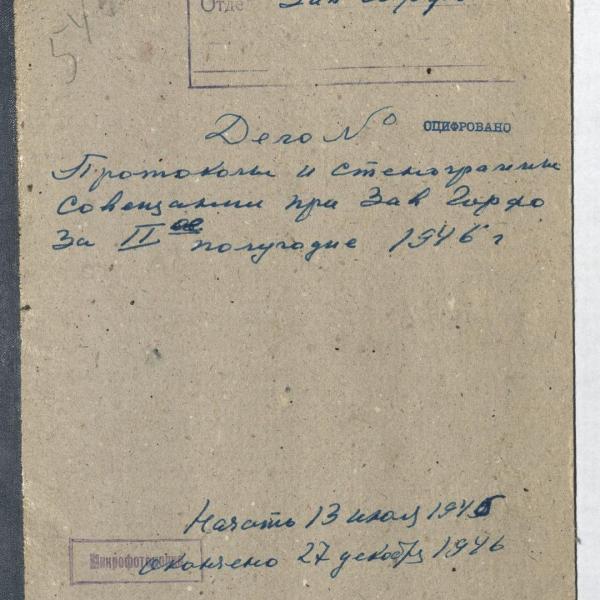 Отде Зав Горфо
54
Дело № ОЦИФРОВАНО
Протоколы и стенограммы
Совещании при Зав Горфо
За II ое полугодие 1946 г
Начать 13 июля 1946
окончено 27 декабря 1946